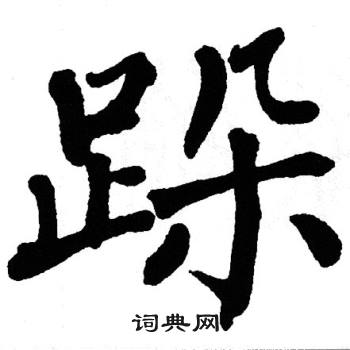 跺
词典网